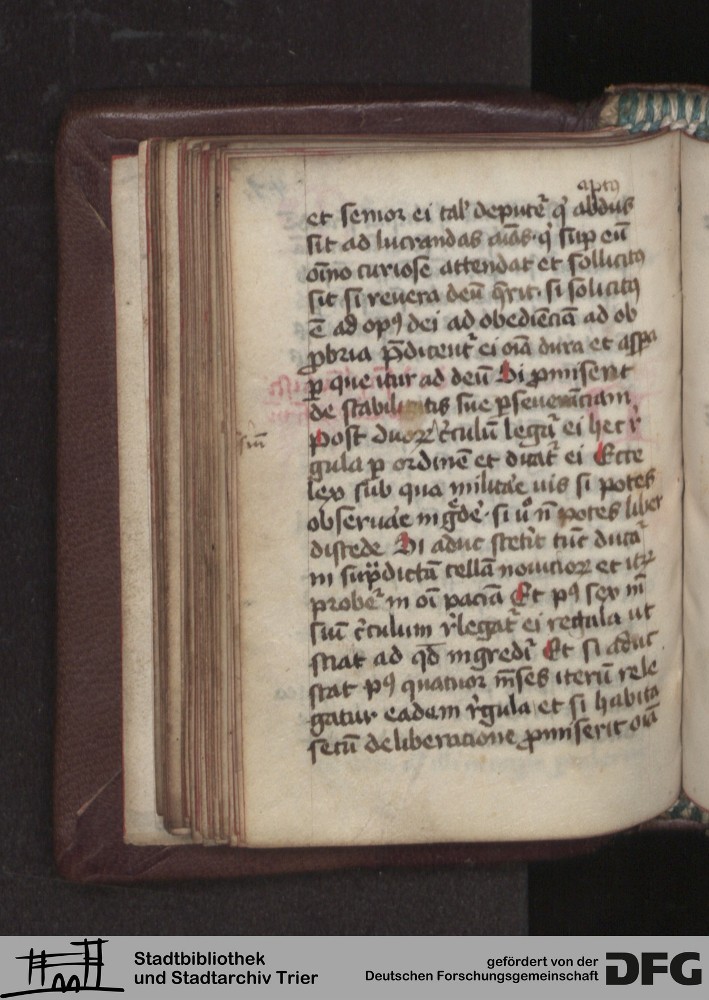 aptꝯ
et senior ei tał deputet̃ q̇ abdus
sit ad lucrandas aı̃as· q̇ sup eũ
oı̃no curiose attendat et sollicitꝯ
sit si reuera deũ q̃rit· si solicitꝯ
ē ad opꝯ dei ad obediẽciã ad ob
ꝓbria p̃dicent̃ ei oı̃a dura et asp̲a
p̲ que itur ad deũ Si ꝓmiserit
de stabilitatis sue p̲seuerãciam
post duoꝝ c̃culũ legat̃ ei hec r̃
siũ
gula p̲ ordinẽ et dicat̃ ei Ecce
lex sub qua militãe uis si potes
obseruãe ingᵉde᷑· si uͦ ñ potes liber
discede Si aduc stetit tũc ducat̃
in sup̃dictã cellã nouicioꝝ et itꝝ
probet̃ in oı̃ paciã Et pꝯ sex m̃
siũ c̃culum r̃legat̃ ei regula ut
sciat ad qd̃ ingredit̃ Et si aduc
stat pꝯ quatuor m̃ses iterũ rele
gatur eadem r̃gula et si habita
secũ deliberacione ꝓmiserit oı̃a
Stadtbibliothek
und Stadtarchiv Trier
gefördert von der
Deutschen Forschungsgemeinschaft
DFG